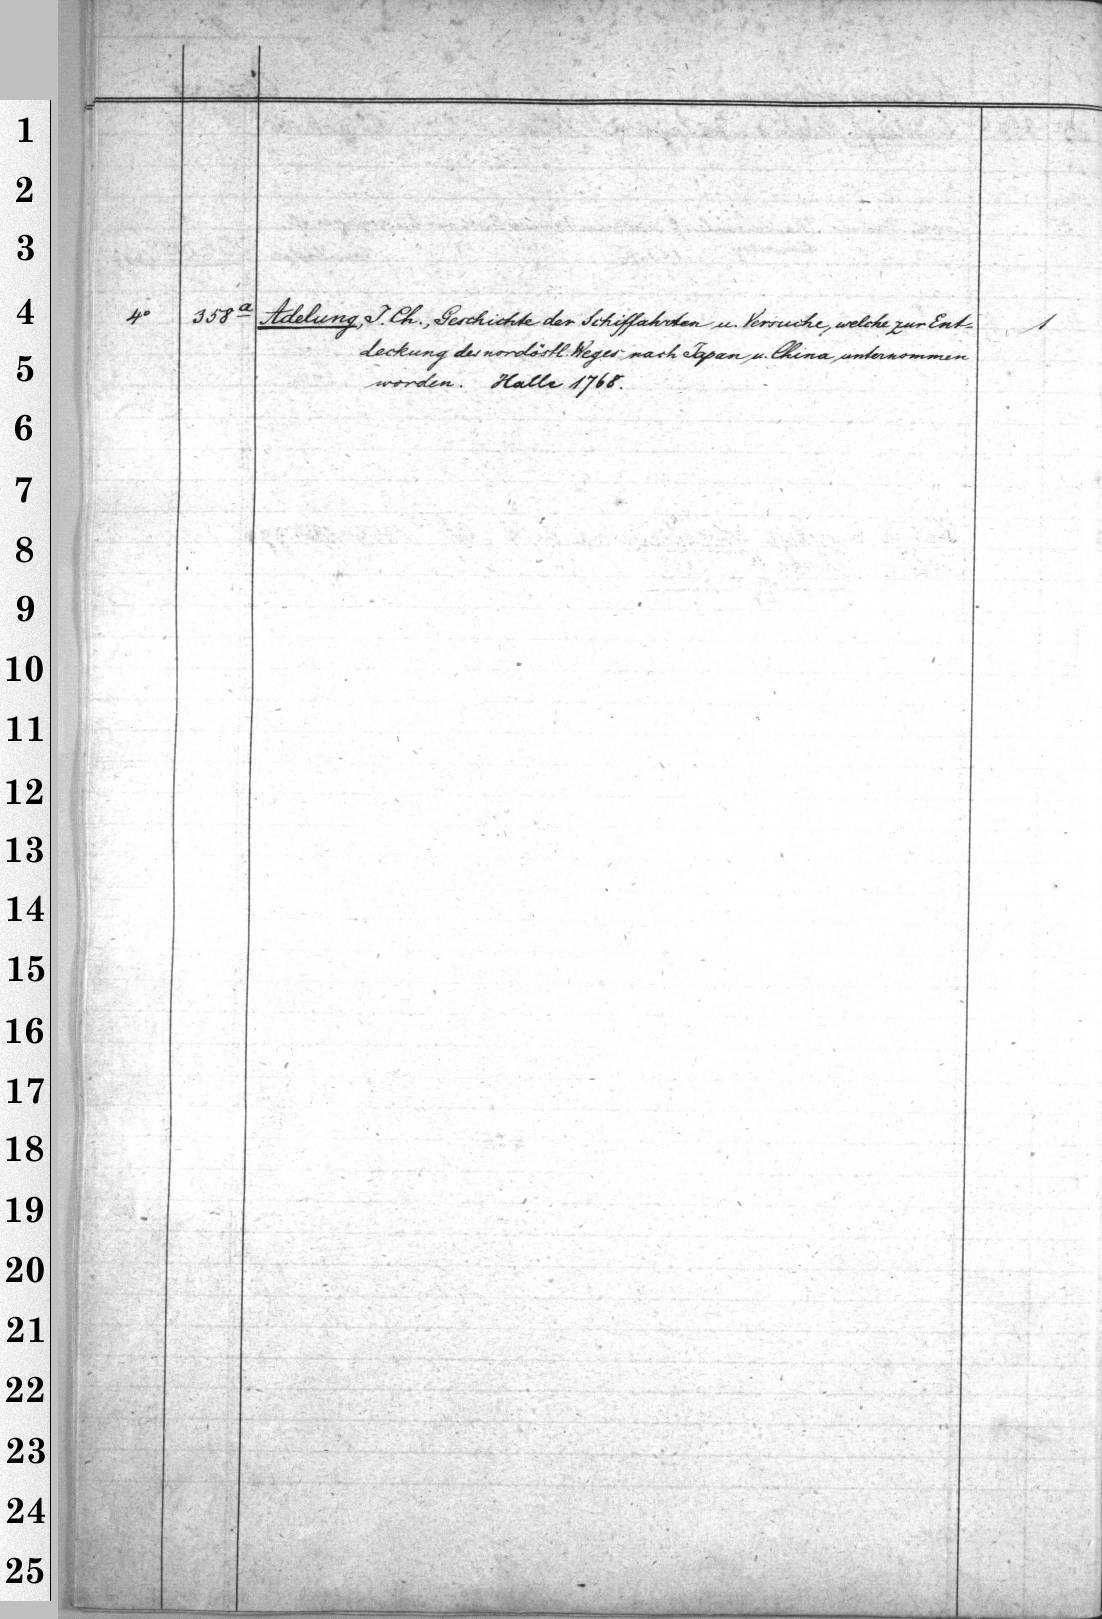 1
2
3
4
4° 358a Adelung, J. Ch., Geschichte der Schiffahrten u. Versuche, welche zur Ent= 1
5
deckung des nordöstl. Weges nach Japan u. China unternommen
worden. Halle 1768.
6
7
8
9
10
11
12
13
14
15
16
17
18
19
20
21
22
23
24
25